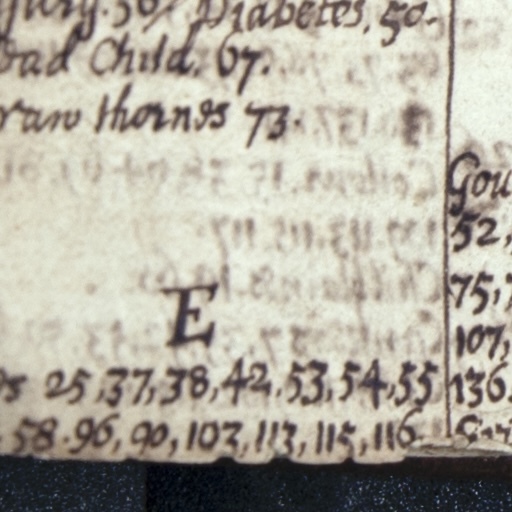 Diabetes. 50.
Dead Child. 67.
draw thornes 73.
E
25, 37, 38, 42, 53, 54, 55
58. 96, 90, 102, 113, 115, 116
Gou
52,
75,
107,
136.